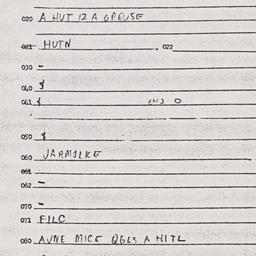 020 A HUT 12 A OPEUSE
021 HUTN . 022
030 -
040 $
041 $ AND O
050 $
060 JARMILKE
061
062 -
070 -
071 FILC
080 AVNE MICE QGLS A HITL